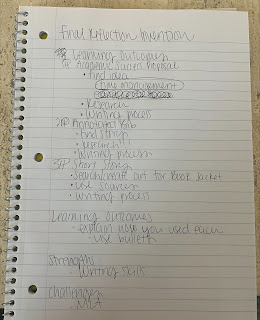 Final Reflection Invention
Learning Outcomes
1P Academic Success Proposal
• find idea
time management
• Research
• Writing process
2P Annotated Bib
• find strips
• research
• Writing process
3P Short Story
• Search/create art for Book Jacket
• use sources
• writing process
Learning Outcomes
• explain how you used each
• use bullets
Strengths
• Writing skills
Challenges
• MLA